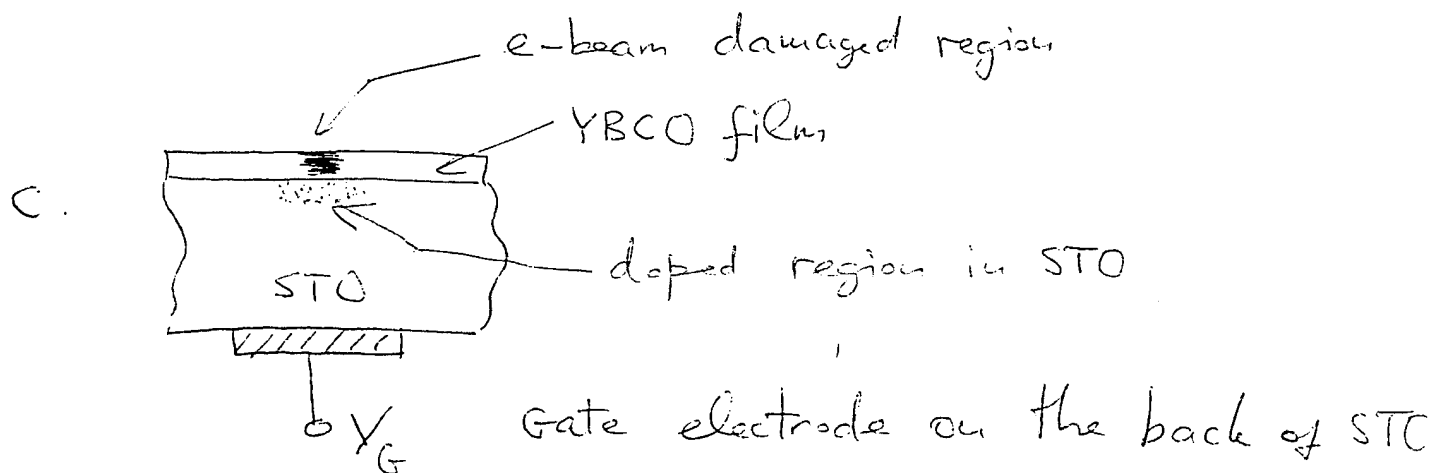 e-beam damaged region
YBCO film
C.
doped region in STO
STO
V_G
Gate electrode on the back of STO